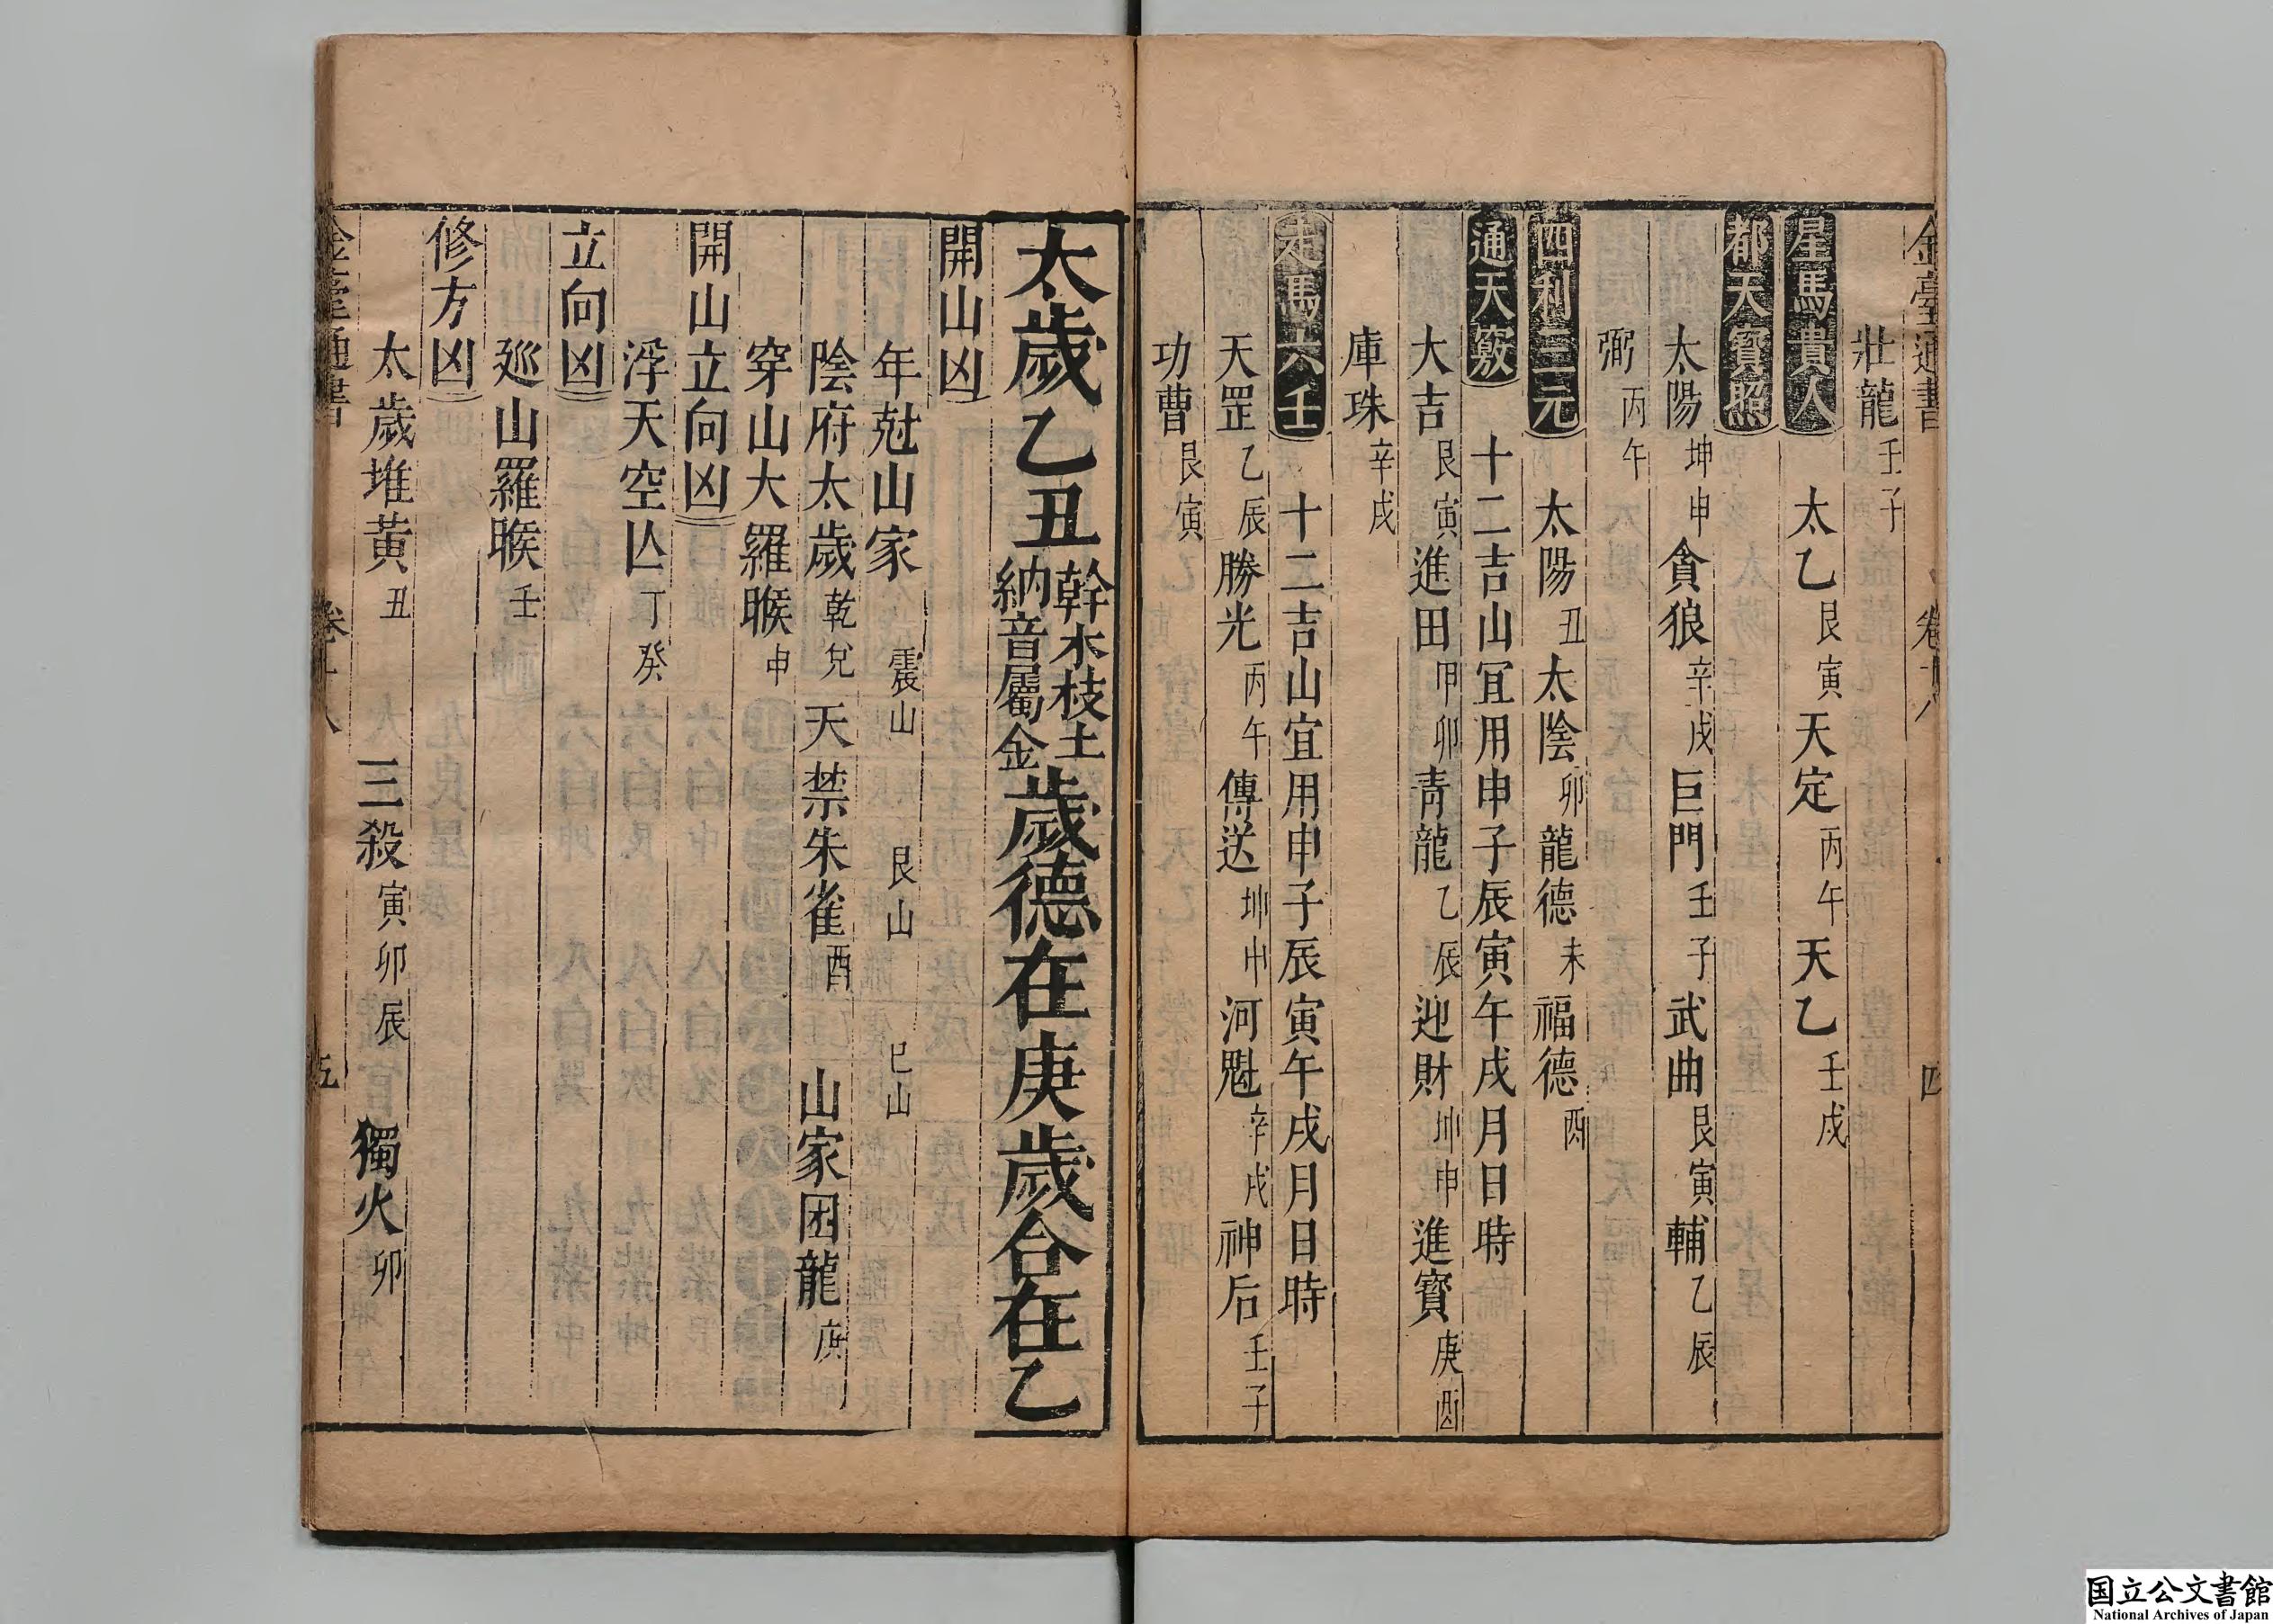 金臺通書 卷十八 四
壯龍壬子
星馬貴人 太乙艮寅 天定丙午 天乙壬戌
都天寶照
太陽坤申 貪狼辛戌 巨門壬子 武曲艮寅 輔乙辰
弼丙午
四利三元 太陽丑 太陰卯 龍德未 福德酉
通天竅 十二吉山宜用申子辰寅午戌月日時
大吉艮寅 進田甲卯 青龍乙辰 迎財坤申 進寶庚酉
庫珠辛戌
走馬六壬 十二吉山宜用申子辰寅午戌月日時
天罡乙辰 勝光丙午 傳送坤申 河魁辛戌 神后壬子
功曹艮寅
太歲乙丑 幹木枝土 納音屬金 歲德在庚歲合在乙
開山凶
年尅山家 震山 艮山 巳山
陰府太歲乾兌 天禁朱雀酉 山家困龍庚
穿山大羅睺申
開山立向凶
浮天空亾丁癸
立向凶
廵山羅睺壬
修方凶
太歲堆黃丑 三殺寅卯辰 獨火卯
金臺通書 卷十八 五
国立公文書館
National Archives of Japan